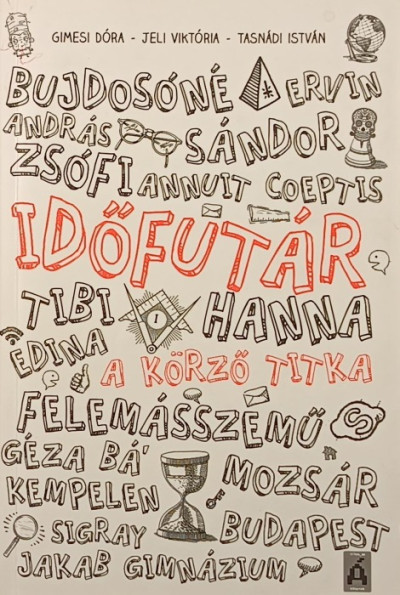 GIMESI DÓRA - JELI VIKTÓRIA - TASNÁDI ISTVÁN
BUJDOSÓNÉ ERVIN
ANDRÁS SÁNDOR
ZSÓFI ANNUIT COEPTIS
IDŐFUTÁR
TIBI HANNA
EDINA
A KÖRZŐ TITKA
FELEMÁSSZEMŰ
GÉZA BÁ' MOZSÁR
KEMPELEN
SIGRAY BUDAPEST
JAKAB GIMNÁZIUM